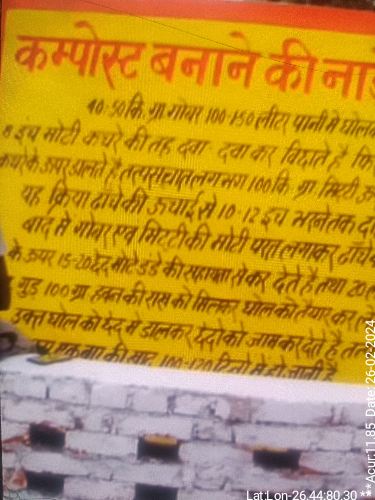 कम्पोस्ट बनाने की
40-50 कि. ग्रा. गोबर 100-150 लीटर पानी में घोल
8 इंच मोटी कचरे की तह दबा दबा कर बिछाते है
के ऊपर डालते है तत्पश्चात लगभग 100 कि. ग्रा मिट्टी
यह क्रिया ढांचे की ऊंचाई से 10-12 इंच भरने तक
बाद में गोबर एवं मिटटी की मोटी परत लगाकर ढांचे
के ऊपर 15-20 छेद मोटे डंडे की सहायता से कर देते है तथा
गुड़ 100 ग्रा. हवन की राख को मिलाकर घोल को तैयार कर
उक्त घोल को छेद में डालकर छेदो को जाम कर देते है
की खाद 100-120 दिनो में हो जाती है
Lat:Lon-26.44:80.30 ***Acur:11.85 Date: 26-02-2024